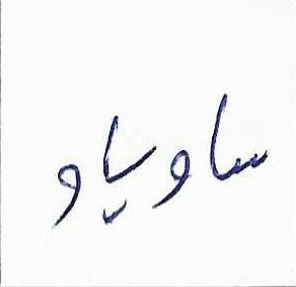 ساو یاو